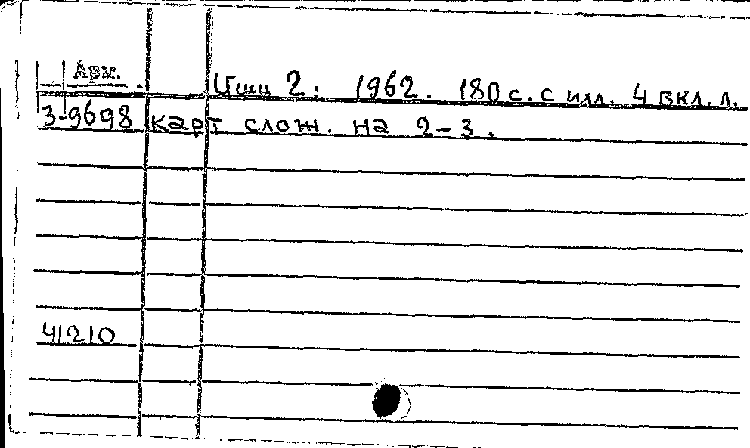 Арм.
2. 1962. 180 с. с илл. 4 вкл. л.
3-9698 карт слож. на 2-3.
41210